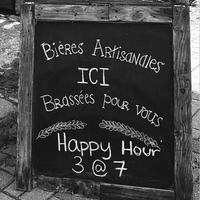 Bières Artisanales
ICI
Brassées pour vous
Happy Hour
3 @ 7